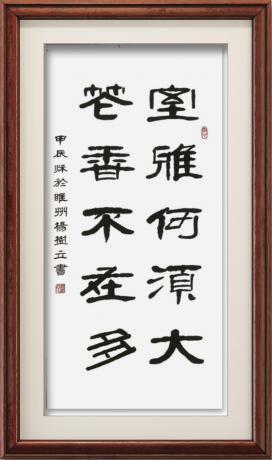 室雅何須大
花香不在多
甲辰秋於睢州楊樹立書